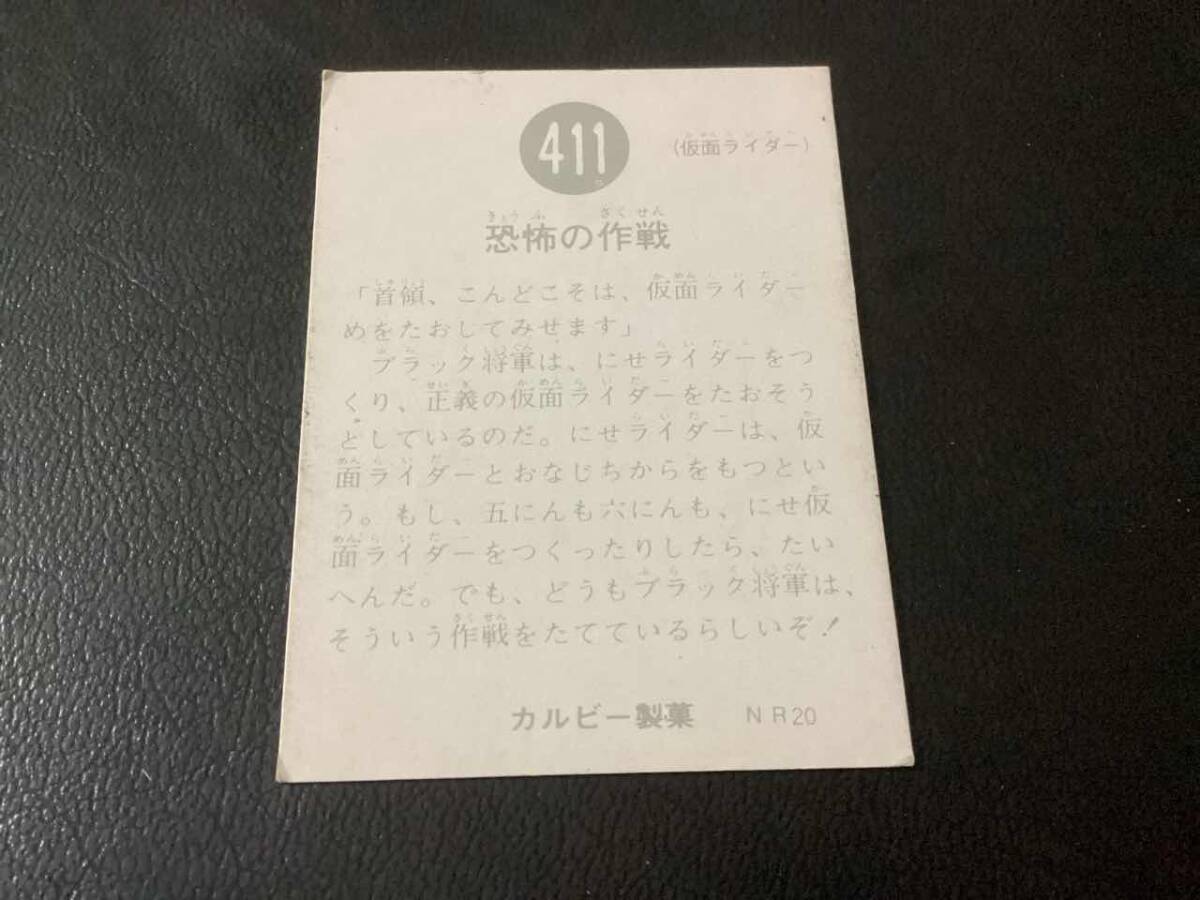 411
(仮面ライダー)
恐怖の作戦
「首領、こんどこそは、仮面ライダー
めをたおしてみせます」
ブラック将軍は、にせライダーをつ
くり、正義の仮面ライダーをたおそう
としているのだ。にせライダーは、仮
面ライダーとおなじちからをもつとい
う。もし、五にんも六にんも、にせ仮
面ライダーをつくったりしたら、たい
へんだ。でも、どうもブラック将軍は、
そういう作戦をたてているらしいぞ！
カルビー製菓 NR20